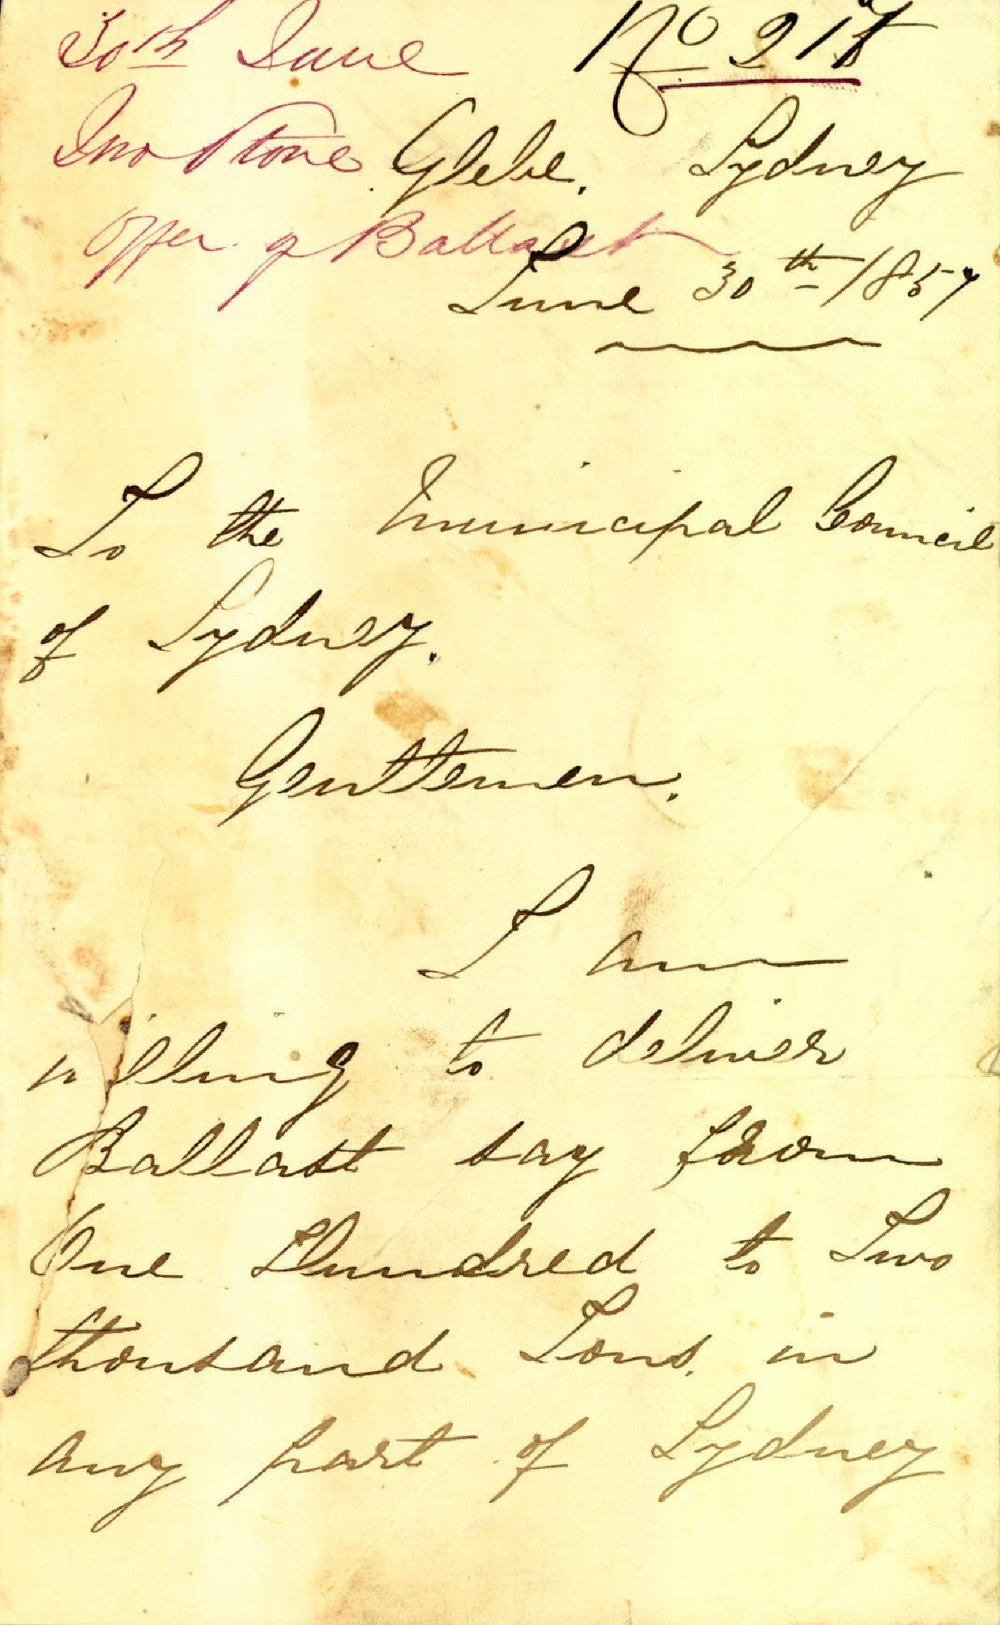 30th June
No 217
Jno Stone
Glebe. Sydney
Offer of Ballast
June 30th 1857
To the Municipal Council
of Sydney.
Gentlemen.
I am
willing to deliver
Ballast say from
One Hundred to Two
thousand Tons. in
any part of Sydney